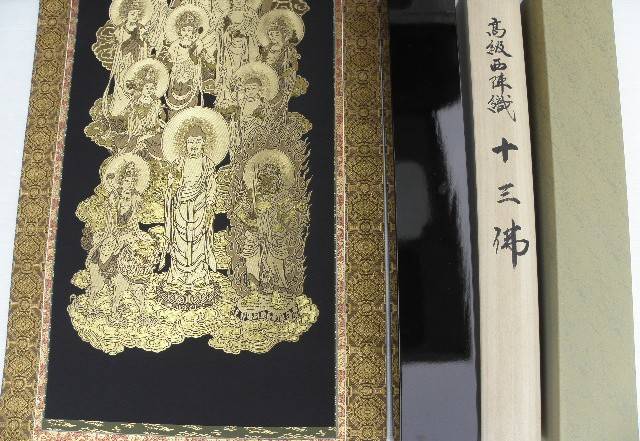 高級西陣織 十三佛